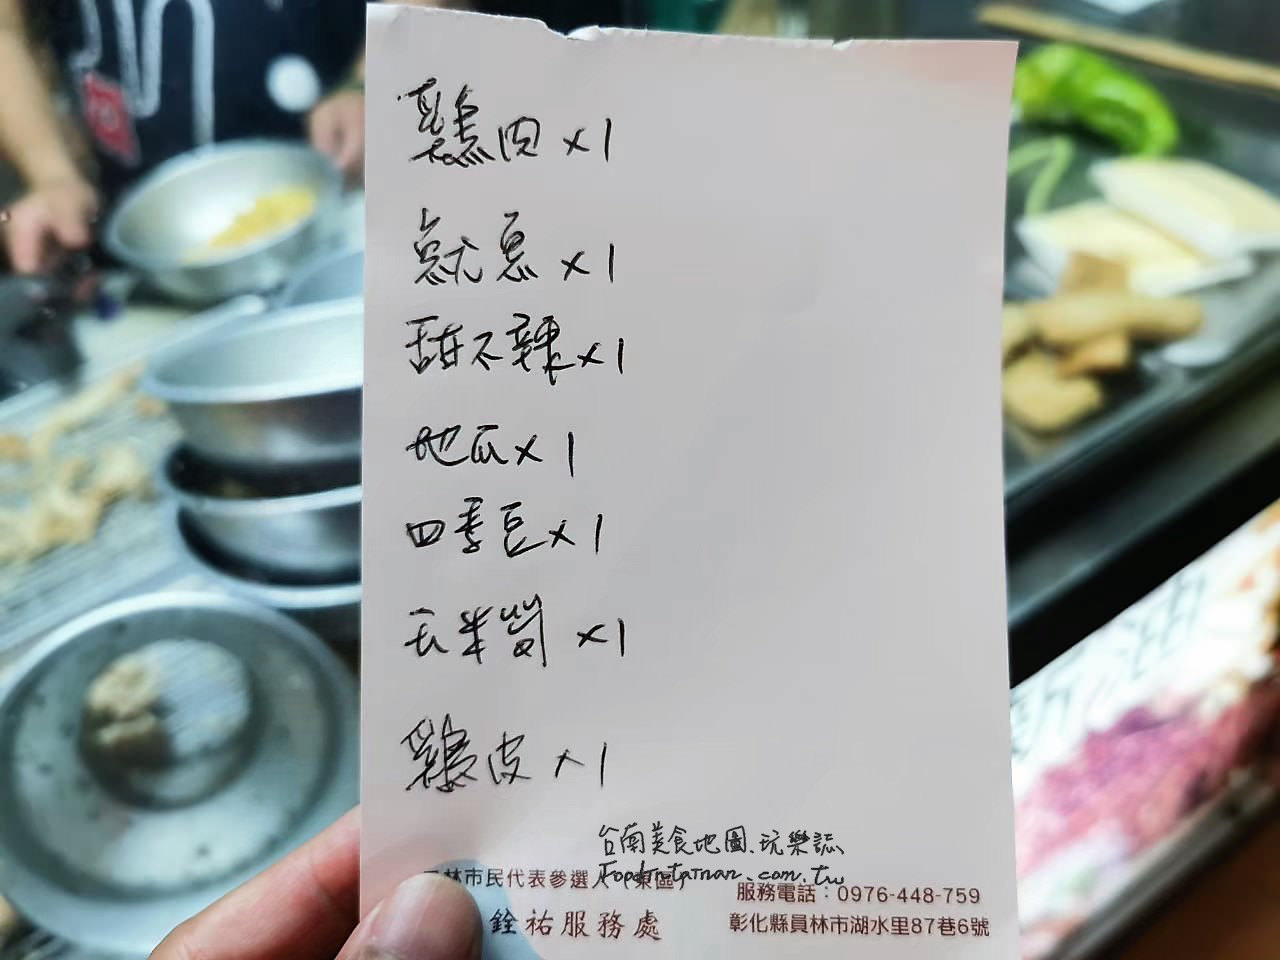 雞肉×1
魷魚×1
甜不辣×1
地瓜×1
四季豆×1
玉米筍×1
雞皮×1
台南美食地圖.玩樂誌
Foodintainan.com.tw
林市民代表參選人(東區)
服務電話：0976-448-759
銓祐服務處
彰化縣員林市湖水里87巷6號